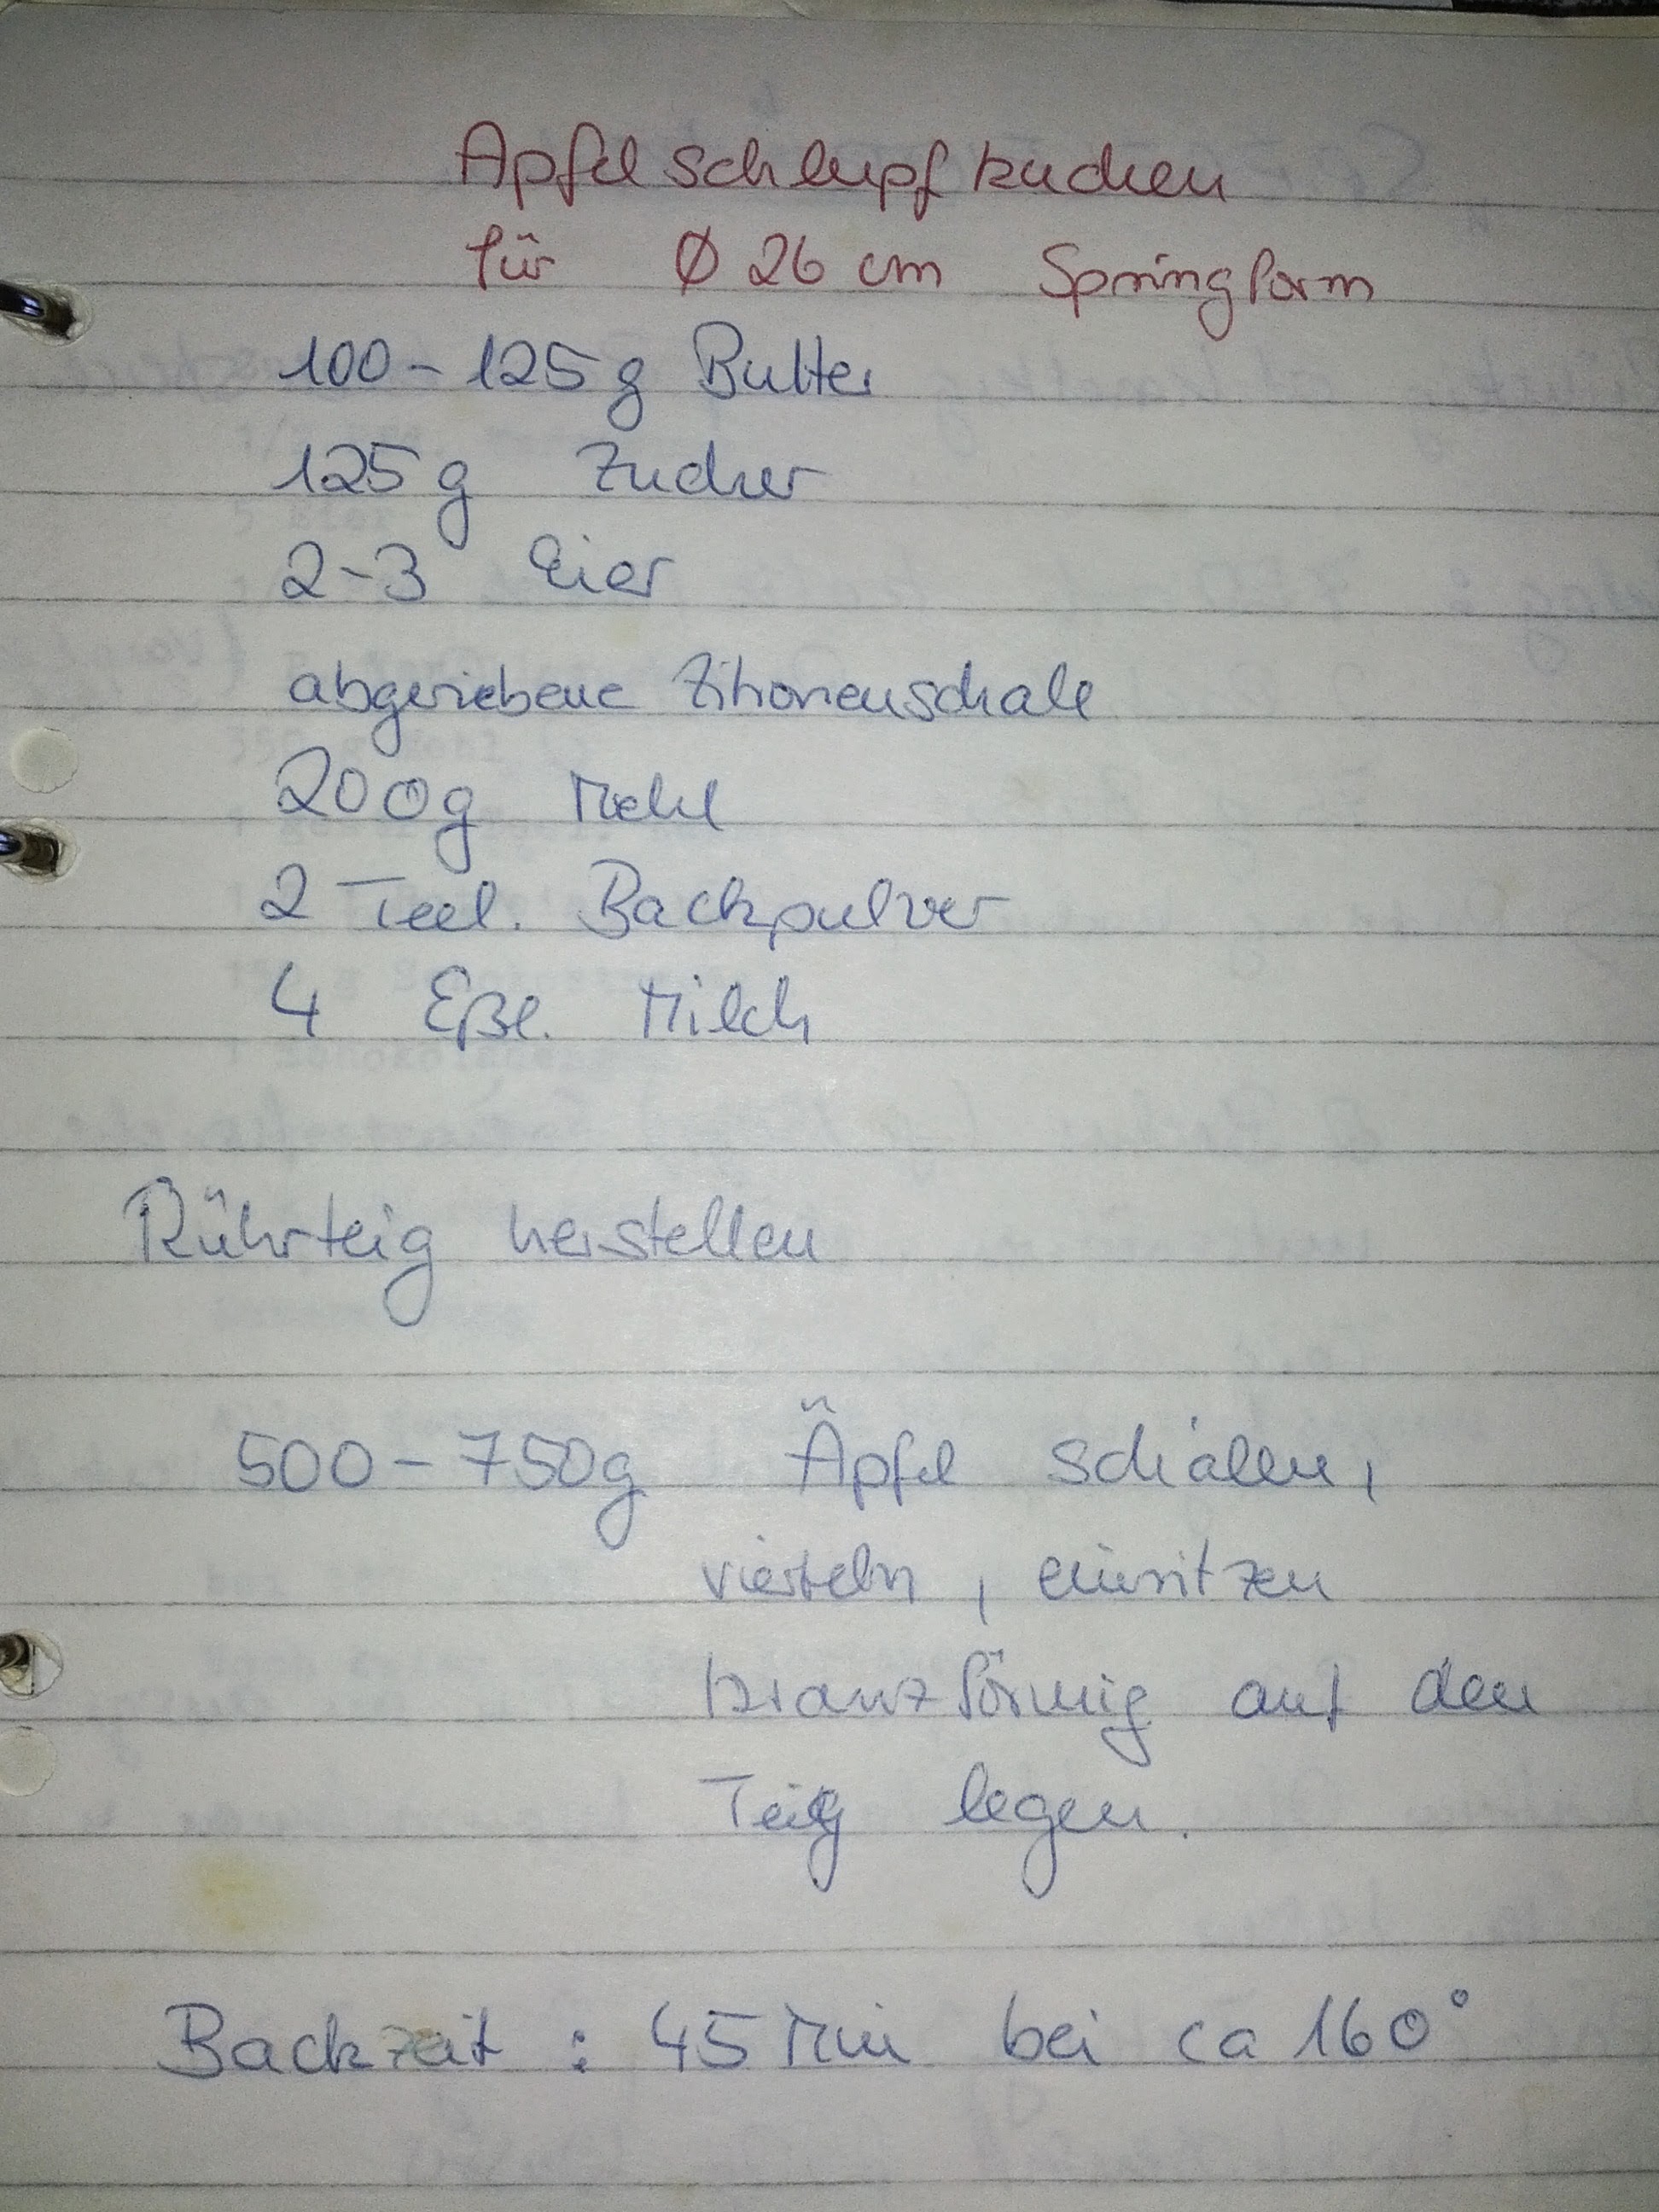 Apfelschlupfkuchen
für Ø 26 cm Springform
100 - 125 g Butter
125 g Zucker
2-3 Eier
abgeriebene Zitronenschale
200g Mehl
2 Teel. Backpulver
4 Eßl. Milch
Rührteig herstellen
500 - 750g Äpfel schälen,
vierteln, einritzen
kranzförmig auf den
Teig legen.
Backzeit : 45 Min bei ca 160°